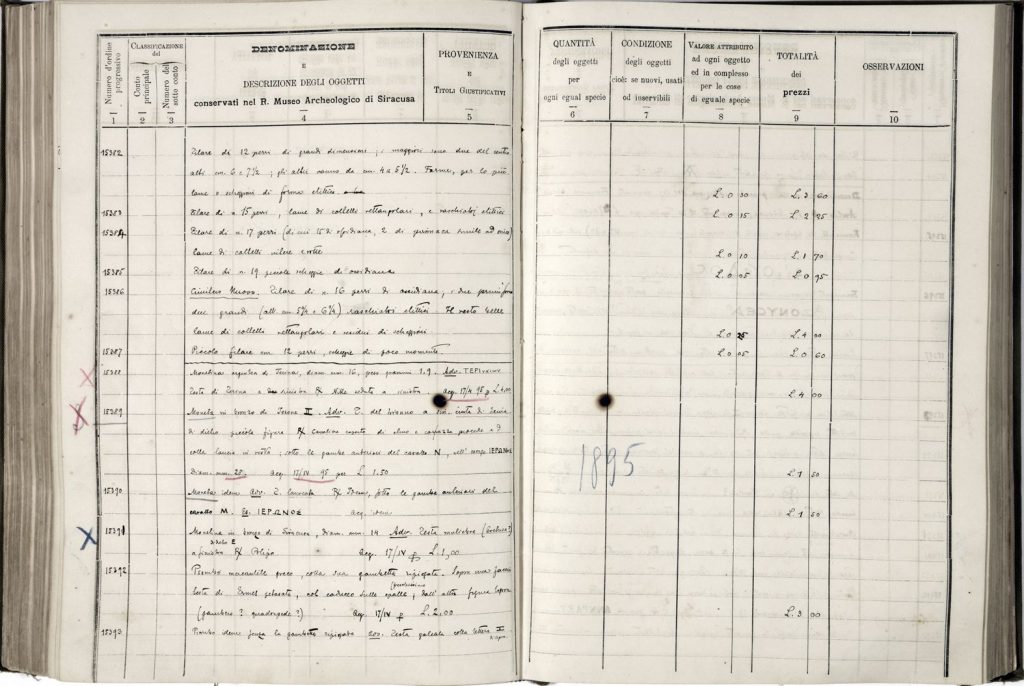 Numero d'ordine progressivo
Classificazione del
Conto principale
Numero del sotto conto
DENOMINAZIONE
E
DESCRIZIONE DEGLI OGGETTI
conservati nel R. Museo Archeologico di Siracusa
PROVENIENZA
E
Titoli Giustificativi
QUANTITÀ
degli oggetti
per
ogni egual specie
CONDIZIONE
degli oggetti
cioè: se nuovi, usati
od inservibili
Valore attribuito
ad ogni oggetto
ed in complesso
per le cose
di eguale specie
TOTALITÀ
dei
prezzi
OSSERVAZIONI
1 2 3 4 5 6 7 8 9 10
15382 Filare di 12 pezzi di grandi dimensioni; i maggiori sono due del centro
alti cm. 6 e 7½; gli altri vanno da cm. 4 a 5½. Forme, per lo più
lame e scheggioni di forma elittica L. 0 30 L. 3 60
15383 Filare di n. 15 pezzi, lame di coltelli rettangolari, e raschiatoj elittici L. 0 15 L. 2 25
15384 Filare di n. 17 pezzi (di cui 15 di ossidiana, 2 di piromaca
lame di coltelli intere e rotte L. 0 10 L. 1 70
15385 Filare di n. 19 piccole scheggie di ossidiana L. 0 05 L. 0 95
15386 Cimitero Nuovo. Filare di n. 16 pezzi di ossidiana, i due primi sono
due grandi (alt. cm. 5¾ e 6¼) raschiatoi elittici Il resto belle
lame di coltello rettangolari e residui di scheggioni L. 0 25 L. 4 00
15387 Piccolo filare con 12 pezzi, scheggie di poco momento L. 0 05 L. 0 60
15388 Monetina argentea di Terina, diam. mm. 16, peso grammi 1.9. Adv. ΤΕΡΙΝΑΙΟΝ
Testa di Terina a sinistra ℞ Nike seduta a sinistra. Acq. 17/4 95 p L 4,00 L. 4 00
15389 Moneta in bronzo di Ierone II. Adv. T. del tiranno a sin. cinta di tenia
di dietro piccola figura ℞ Cavaliere coperto di elmo e corazza procede a d.
colla lancia in resta; sotto le gambe anteriori del cavallo N, nell'esergo ΙΕΡΩΝΟΣ
Diam. mm. 28. Acq. 17/IV 95 per L 1.50 L. 1 50
1895
15390 Moneta idem Adv. T. laureata ℞ Idem, sotto le gambe anteriori del
cavallo M. Es. ΙΕΡΩΝΟΣ Acq. idem L. 1 50
15391 Monetina in bronzo di Siracusa, diam. mm. 14 Adv. Testa muliebre (Aretusa?)
a sinistra ℞ Polipo Acq. 17/IV p L. 1,00
15392 Piombo mercantile greco, colla sua gambetta ripiegata. Sopra una faccia
testa di Ermes petasato, col caduceo sulle spalle, dall'altra figura logora
(gambero? quadrupede?) Acq. 17/IV p L. 2.00 L. 3 00
15393 Piombo idem senza la gambetta ripiegata adv. Testa galeata colla lettera